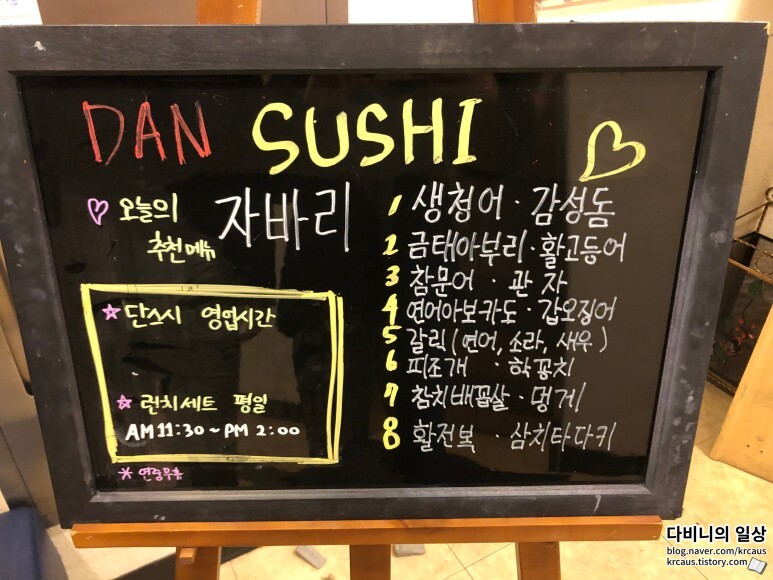 DAN SUSHI
오늘의
추천메뉴
자바리
단스시 영업시간
런치세트 평일
AM 11:30 ~ PM 2:00
* 연중무휴
1 생청어 · 감성돔
2 금태아부리 · 활고등어
3 참문어 · 관자
4 연어아보카도 · 갑오징어
5 갈릭 (연어, 소라, 새우)
6 피조개 · 학꽁치
7 참치배꼽살 · 멍게
8 활전복 · 삼치타다키
다비니의 일상
blog.naver.com/krcaus
krcaus.tistory.com